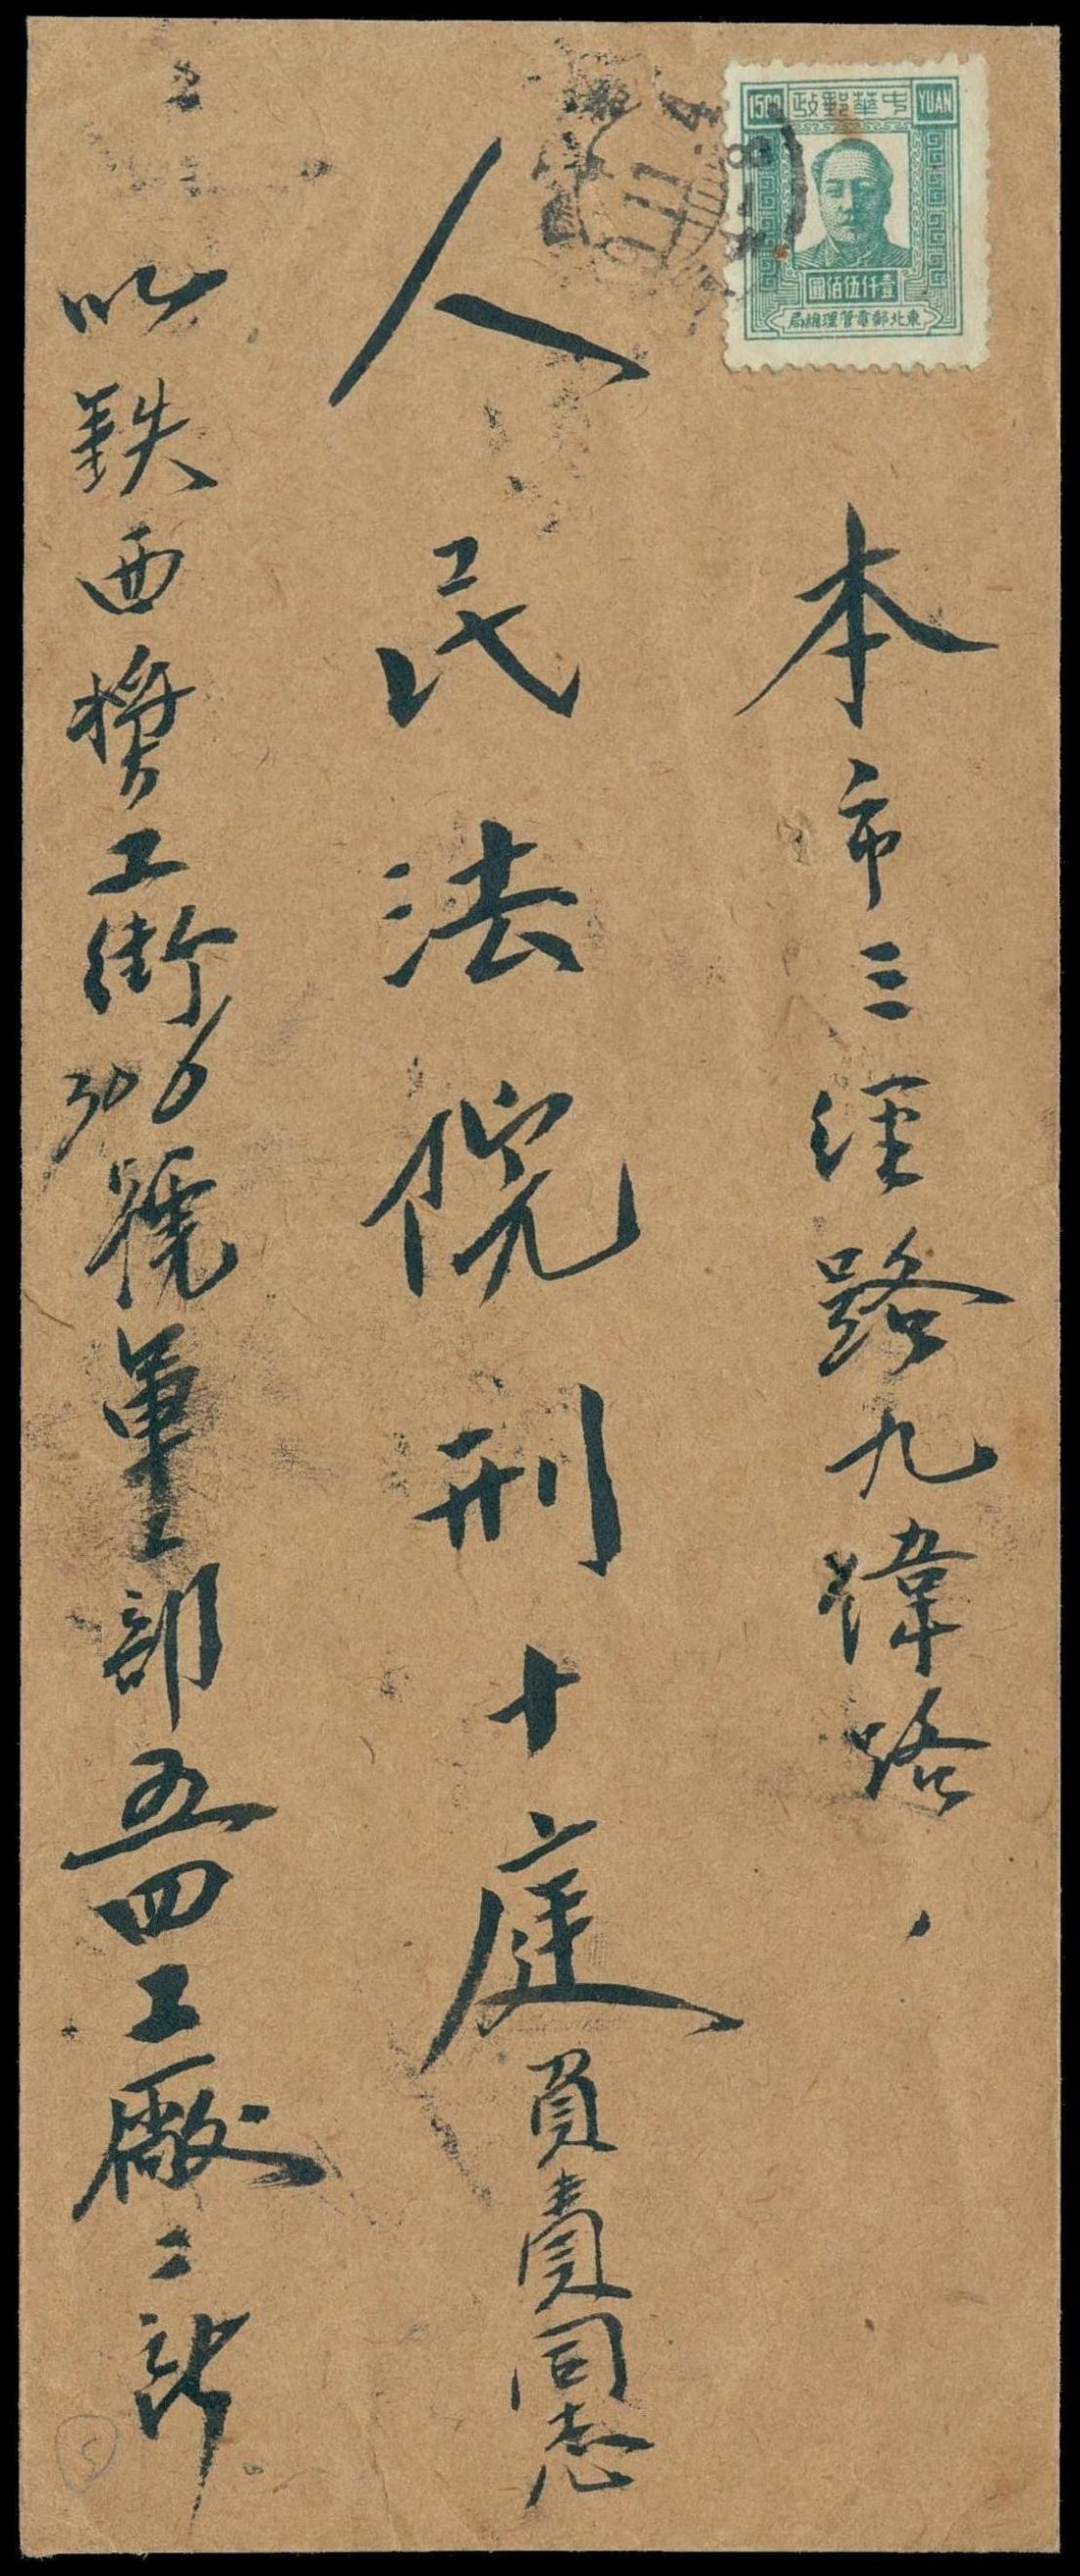 1500 中華郵政 YUAN
壹仟伍佰圓
東北郵電管理總局
本市三經路九緯路,
人民法院刑十庭負責同志
鉄西奬工街306號軍工部五四工廠二部
5